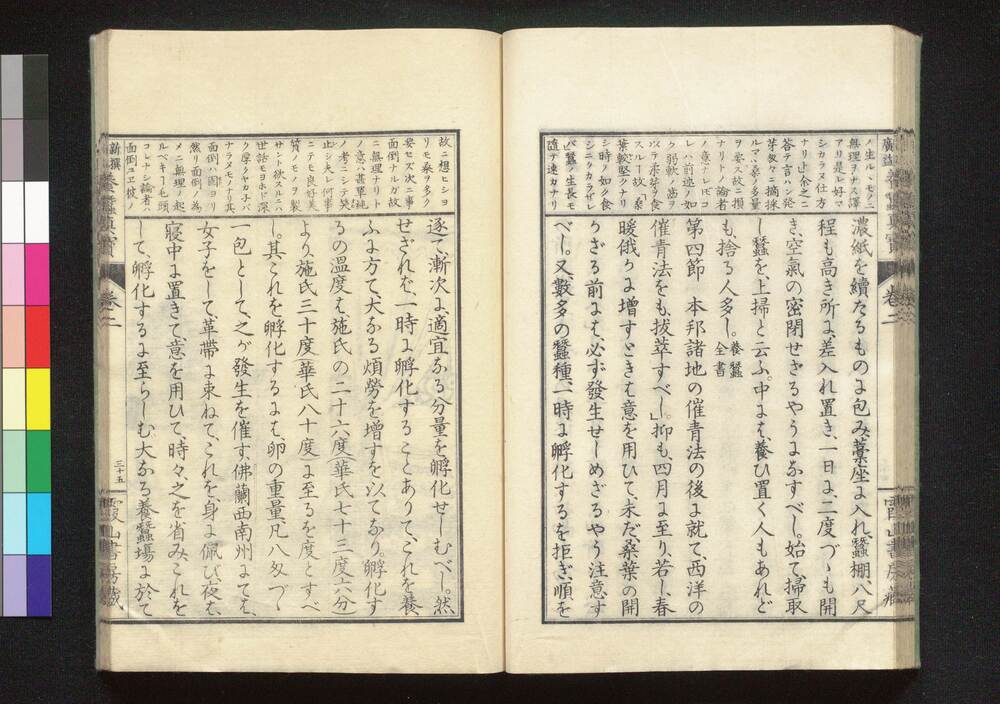 無理ヲナス譯
アリ是レ好マ
シカラヌ仕方
ナリト余之ニ
答テ言ハン発
ヲ要ス故ニ損
ナリトノ論者
レハ前述ノ如
葉較堅クナリ
シ時ノ如ク食
バ蠶ノ生長モ
隨テ速カナリ
濃紙を續たるものに包み、藁座に入れ、蠶棚、八尺
程も高き所に、差入れ置き、一日に、二度づゝも開
き、空氣の密閉せざるやうになすべし。始て掃取
し蠶を、上掃と云ふ。中には、養ひ置く人もあれど
も、捨る人多し。養蠶全書
第四節　本邦諸地の催青法の後に就て、西洋の
催青法をも、拔萃すべし」抑も、四月に至り、若し、春
暖俄かに増すときは、意を用ひて、未だ、桑葉の開
かざる前には、必ず、發生せしめざるやう、注意す
べし。又、數多の蠶種、一時に孵化するを拒ぎ、順を
故ニ想ヒシヨ
リモ桑ヲ多ク
要セズ次ニ事
面倒ナルガ故
ニ無理ナリト
ノ意ハ甚單純
ノ考ニシテ笑
止シ夫レ何事
ニテモ良好美
質ノモノヲ製
サント欲スルニハ
世話モヨホド深
ク厚クヤカナバ
ナラヌモノナリ其
面倒ハ固ヨリ
然リ面倒ノ為
メニ無理ノ起
ルベキ一毛頭
コレナシ論者ハ
面倒ユヱ彼ノ
逐て、漸次に、適宜なる分量を孵化せしむべし。然
せざれば、一時に孵化することありて、これを養
ふに方て、大なる煩勞を増すを以てなり。孵化す
るの溫度は、施氏の二十六度(華氏七十三度六分)
より、施氏三十度(華氏八十度)に至るを度とすべ
し。其これを孵化するには、卵の重量、凡八匁づゝ
一包として、之が發生を催す、佛蘭西南州にては、
女子をして、革帶に束ねて、これを、身に佩び、夜は、
寢中に置きて、意を用ひて、時々、之を省み、これを
して、孵化するに至らしむ大なる養蠶場に於て
新撰養蠶眞寶　卷二　三十五　霞山書房藏